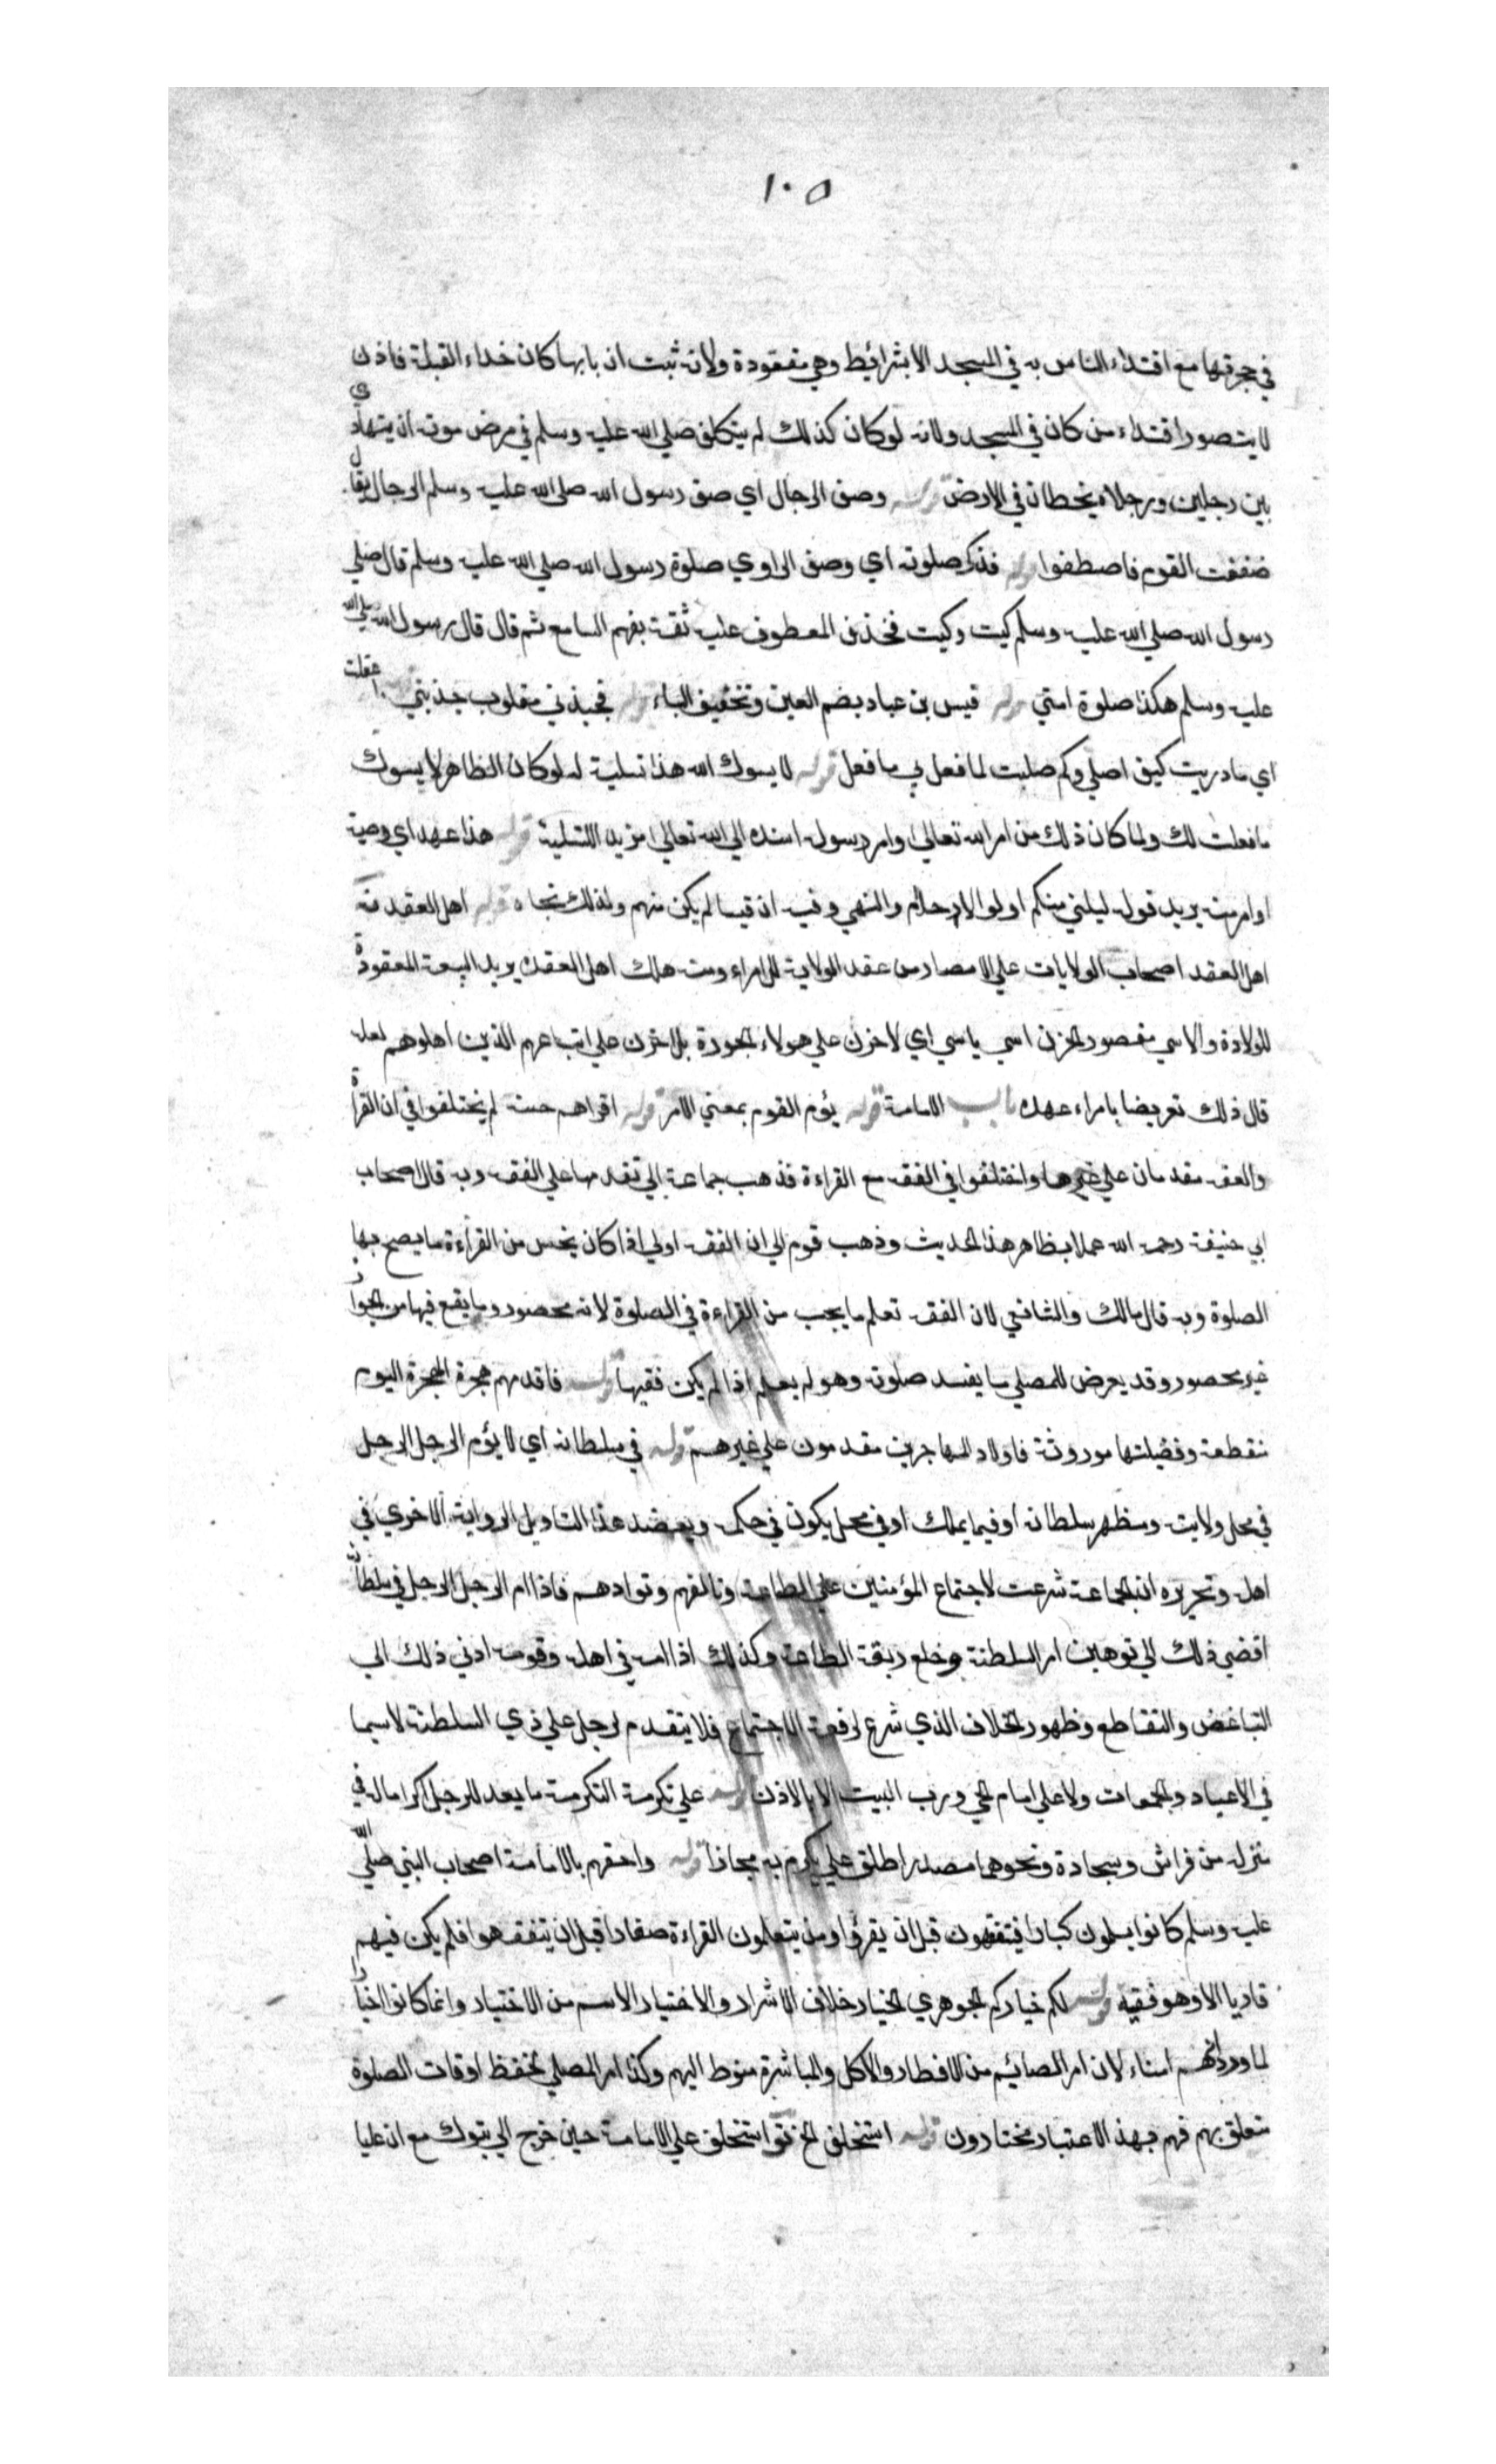 ١٠٥
في حجرتها مع اقتداء الناس به في المسجد الا بشرائط وهي مفقودة ولانه ثبت ان بابها كان حذاء القبلة فاذن
لا يتصور اقتداء من كان في المسجد ولانه لو كان كذلك لم يتكلف صلي الله عليه وسلم في مرض موته ان يتهادي
بين رجلين ورجلاه يخطان في الارض قوله وصف الرجال اي صف رسول الله صلي الله عليه وسلم الرجال يقال
صففت القوم فاصطفوا قوله فذكر صلوته اي وصف الراوي صلوة رسول الله صلي الله عليه وسلم قال صلي
رسول الله صلي الله عليه وسلم كيت وكيت فحذف المعطوف عليه ثقة بفهم السامع ثم قال قال رسول الله صلي الله
عليه وسلم هكذا صلوة امتي قوله قيس بن عباد بضم العين وتخفيف الباء قوله فجبذني مقلوب جذبني قوله ما عقلت
اي ما دريت كيف اصلي وكم صليت لما فعل بي ما فعل قوله لا يسوك الله هذا تسلية له لو كان الظاهر لا يسوك
ما فعلت لك ولما كان ذلك من امر الله تعالي وامر رسوله اسنده الي الله تعالي مزيد اللتسلية قوله هذا عهد اي وصية
او امر منه يريد قوله ليلني منكم اولوا الارحام والنهي وفيه ان قيسا لم يكن منهم ولذلك نحاه قوله اهل العقد فيه
اهل العقد اصحاب الولايات علي الامصار من عقد الولاية للامراء ومنه هلك اهل العقد يريد البيعة المعقودة
للولادة والاسي مقصور الحزن اسي ياسي اي لا حزن علي هولاء الجورة بل احزن علي اتباعهم الذين اهلوهم لعله
قال ذلك تعريضا بامراء عهده باب الامامة قوله يؤم القوم بمعني الامر قوله اقراهم حسنه لم يختلفوا في ان القراءة
والفقه مقدمان علي غيرها واختلفوا في الفقه مع القراءة فذهب جماعة الي تقدمها علي الفقه وبه قال اصحاب
ابي حنيفة رحمه الله عملا بظاهر هذا الحديث وذهب قوم الي ان الفقه اولي اذا كان يحسن من القراءة ما يصح بها
الصلوة وبه قال مالك والشافعي لان الفقه تعلم ما يجب من القراءة في الصلوة لانه محصور وما يقع فيها من الجواز
غير محصور وقد يعرض للمصلي ما يفسد صلوته وهو لم يعلم اذا لم يكن فقيها قوله فاقدمهم هجرة الهجرة اليوم
منقطعة وفضيلتها موروثة فاولاد المهاجرين مقدمون علي غيرهم قوله في سلطانه اي لا يؤم الرجل الرجل
في محل ولايته ومظهر سلطانه او فيما يملك او في محل يكون في حكمه ويعضد هذا التاويل الرواية الاخري في
اهله وتحريره ان الجماعة شرعت لاجتماع المؤمنين علي الطاعة وتالفهم وتوادهم فاذا ام الرجل الرجل في سلطانه
افضي ذلك الي توهين امر السلطنة وخلع ربقة الطاعة وكذلك اذا امه في اهله وقومه ادني ذلك الي
التباغض والتقاطع وظهور الخلاف الذي شرع لرفعه الاجتماع فلا يتقدم لرجل علي ذي السلطنة لاسيما
في الاعياد والجمعات ولا علي امام الحي ورب البيت الا بالاذن قوله علي تكرمته التكرمة ما يعد للرجل اكراما له في
منزله من فراش وسجادة ونحوهما مصدر اطلق علي يكرم به مجازا قوله واحقهم بالامامة اصحاب النبي صلي الله
عليه وسلم كانوا يسلمون كبارا فيتفقهون قبل ان يقرؤا ومن يتعلمون القراءة صغارا قبل ان يتفقهوا فلم يكن فيهم
قاريا الا وهو فقيه قوله لكم خياركم الجوهري الخيار خلاف الاشرار والاختيار الاسم من الاختيار وانما كانوا اخيارا
لما ورد انهم امناء لان امر الصائم من الافطار والاكل والمباشرة منوط اليهم وكذا امر المصلي لحفظ اوقات الصلوة
متعلق بهم فهم بهذا الاعتبار مختارون قوله استخلف الخ تو استخلف علي الامامة حين خرج الي تبوك مع ان عليا